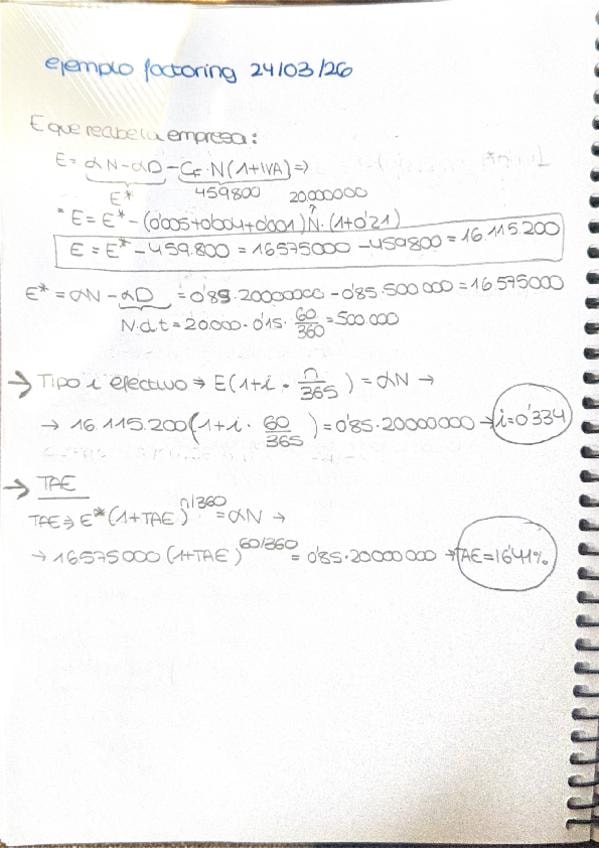 ejemplo factoring 24/03/26
E que recibe la empresa:
E = αN - αD - CF · N(1+IVA) ⇒
E* 459800 20.000000
* E = E* - (0'005+0'004+0'001)N · (1+0'21)
E = E* - 459.800 = 16575000 - 459800 = 16.115.200
E* = αN - αD = 0'85 · 20000000 - 0'85 · 500 000 = 16 575000
N·d·t = 20.000 · 0'15 · 60/360 = 500.000
→ Tipo i efectivo ⇒ E(1+i · n/365) = αN →
→ 16.115.200(1+i · 60/365) = 0'85 · 20000000 → i = 0'334
→ TAE
TAE ⇒ E*(1+TAE)^n/360 = αN →
→ 16575000 (1+TAE)^60/360 = 0'85 · 20000000 → TAE = 16'41%